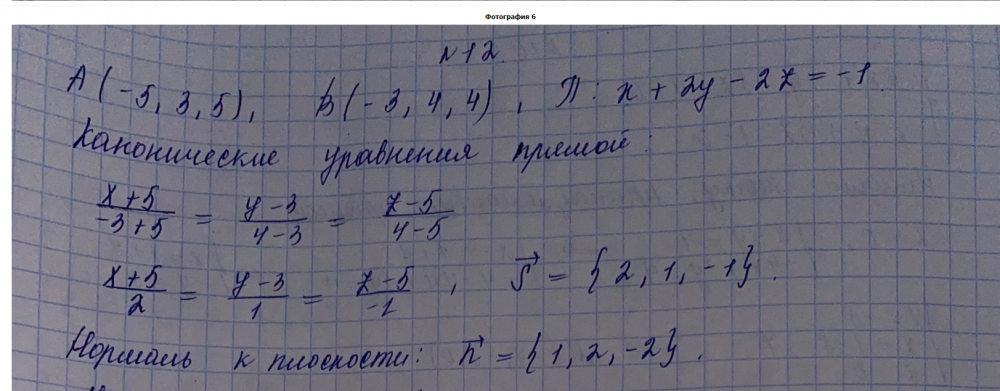 Фотография 6
N 12.
A(-5, 3, 5), B(-3, 4, 4), П: x + 2y - 2z = -1.
Канонические уравнения прямой:
(x+5)/(-3+5) = (y-3)/(4-3) = (z-5)/(4-5)
(x+5)/2 = (y-3)/1 = (z-5)/(-1), s⃗ = {2, 1, -1}.
Нормаль к плоскости: n⃗ = {1, 2, -2}.